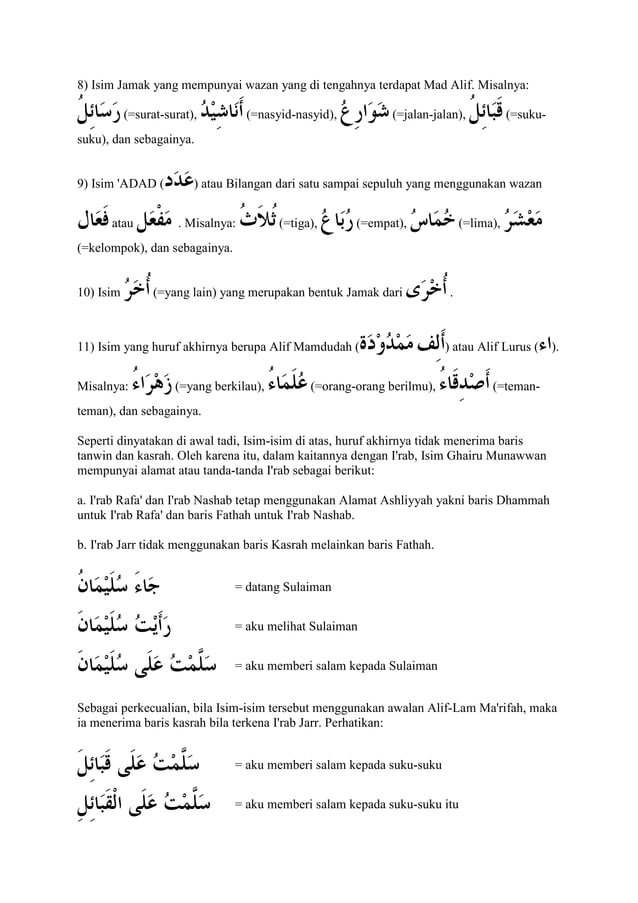 8) Isim Jamak yang mempunyai wazan yang di tengahnya terdapat Mad Alif. Misalnya:
رَسَائِلُ (=surat-surat), أَنَاشِيْدُ (=nasyid-nasyid), شَوَارِعُ (=jalan-jalan), قَبَائِلُ (=suku-
suku), dan sebagainya.
9) Isim 'ADAD (عَدَد) atau Bilangan dari satu sampai sepuluh yang menggunakan wazan
فَعَال atau مَفْعَل . Misalnya: ثُلاَثُ (=tiga), رُبَاعُ (=empat), خُمَاسُ (=lima), مَعْشَرُ
(=kelompok), dan sebagainya.
10) Isim أُخَرُ (=yang lain) yang merupakan bentuk Jamak dari أُخْرَى .
11) Isim yang huruf akhirnya berupa Alif Mamdudah (أَلِف مَمْدُوْدَة) atau Alif Lurus (اء).
Misalnya: زَهْرَاءُ (=yang berkilau), عُلَمَاءُ (=orang-orang berilmu), أَصْدِقَاءُ (=teman-
teman), dan sebagainya.
Seperti dinyatakan di awal tadi, Isim-isim di atas, huruf akhirnya tidak menerima baris
tanwin dan kasrah. Oleh karena itu, dalam kaitannya dengan I'rab, Isim Ghairu Munawwan
mempunyai alamat atau tanda-tanda I'rab sebagai berikut:
a. I'rab Rafa' dan I'rab Nashab tetap menggunakan Alamat Ashliyyah yakni baris Dhammah
untuk I'rab Rafa' dan baris Fathah untuk I'rab Nashab.
b. I'rab Jarr tidak menggunakan baris Kasrah melainkan baris Fathah.
جَاءَ سُلَيْمَانُ = datang Sulaiman
رَأَيْتُ سُلَيْمَانَ = aku melihat Sulaiman
سَلَّمْتُ عَلَى سُلَيْمَانَ = aku memberi salam kepada Sulaiman
Sebagai perkecualian, bila Isim-isim tersebut menggunakan awalan Alif-Lam Ma'rifah, maka
ia menerima baris kasrah bila terkena I'rab Jarr. Perhatikan:
سَلَّمْتُ عَلَى قَبَائِلَ = aku memberi salam kepada suku-suku
سَلَّمْتُ عَلَى الْقَبَائِلِ = aku memberi salam kepada suku-suku itu